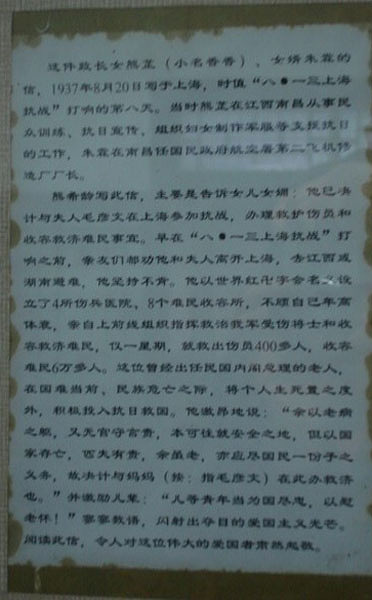 这件致长女熊芷（小名香香）、女婿朱霖的
信，1937年8月20日写于上海，时值“八·一三上海
抗战”打响的第八天。当时熊芷在江西南昌从事民
众训练、抗日宣传，组织妇女制作军服等支援抗日
的工作，朱霖在南昌任国民政府航空署第二飞机修
造厂厂长。
熊希龄写此信，主要是告诉女儿女婿：他已决
计与夫人毛彦文在上海参加抗战，办理救护伤员和
收容救济难民事宜。早在“八·一三上海抗战”打
响之前，亲友们都劝他和夫人离开上海，去江西或
湖南避难，他坚持不肯。他以世界红卍字会名义设
立了4所伤兵医院，8个难民收容所，不顾自己年高
体衰，亲自上前线组织指挥救治我军受伤将士和收
容救济难民，仅一星期，就救出伤员400多人，收容
难民6万多人。这位曾经出任民国内阁总理的老人，
在国难当前、民族危亡之际，将个人生死置之度
外，积极投入抗日救国。他激昂地说：“余以老病
之躯，又无官守言责，本可住就安全之地，但以国
家存亡，匹夫有责，余虽老，亦应尽国民一份子之
义务，故决计与妈妈（按：指毛彦文）在此办救济
也。”并激励儿辈：“儿等青年当为国尽忠，以慰
老怀！”寥寥数语，闪射出夺目的爱国主义光芒。
阅读此信，令人对这位伟大的爱国者肃然起敬。